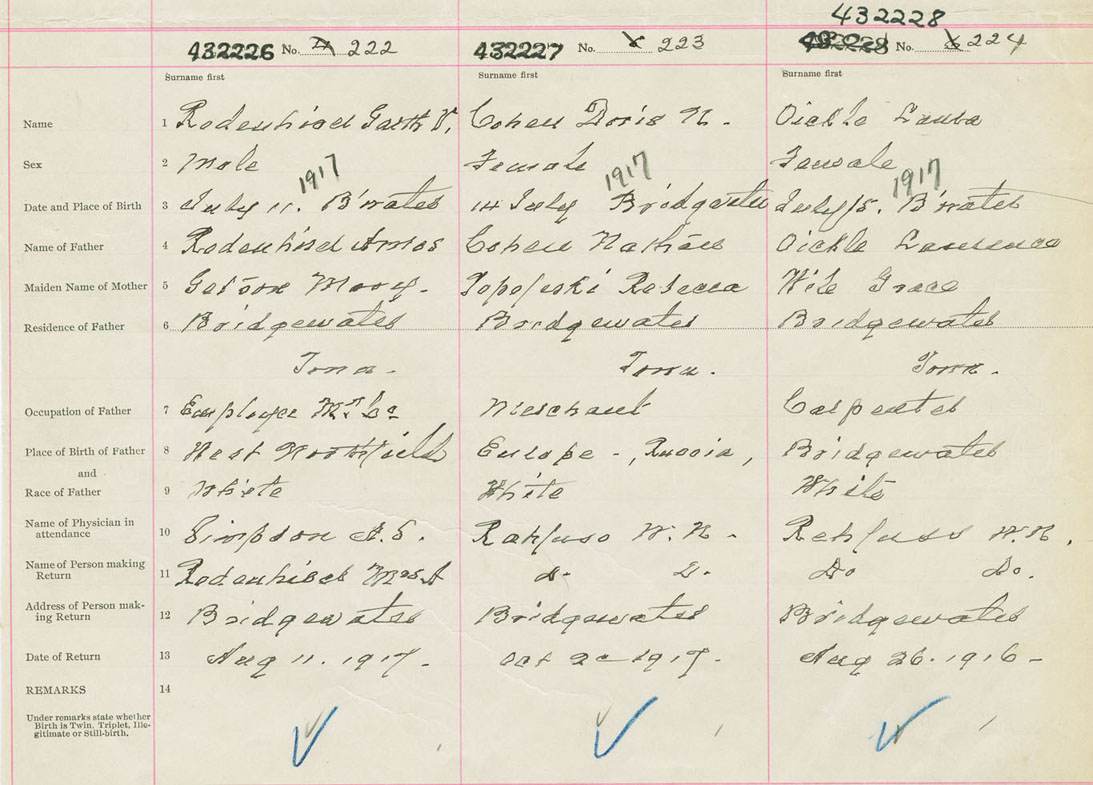 432228
432226 No. 222 432227 No. 223 No. 224
Surname first Surname first Surname first
Name 1 Rodenhiser Garth V. Cohen Doris N. Oickle Laura
Sex 2 Male Female Female
1917 1917 1917
Date and Place of Birth 3 July 11. B'water 14 July Bridgewater July 15. B'water
Name of Father 4 Rodenhiser Amos Cohen Nathan Oickle Lawrence
Maiden Name of Mother 5 Getson Mary. Rebecca Wile Grace
Residence of Father 6 Bridgewater Bridgewater Bridgewater
Town. Town. Town.
Occupation of Father 7 Employee Merchant Carpenter
Place of Birth of Father 8 West Northfield Europe -, Russia, Bridgewater
and
Race of Father 9 White White White
Name of Physician in
attendance 10 Simpson A.E. Rehfuss W.N. Rehfuss W.N.
Name of Person making
Return 11 Rodenhiser Mrs A Do Do. Do Do.
Address of Person mak-
ing Return 12 Bridgewater Bridgewater Bridgewater
Date of Return 13 Aug 11. 1917. Oct 20 1917. Aug 26. 1916 -
REMARKS 14
Under remarks state whether
Birth is Twin, Triplet, Ille-
gitimate or Still-birth.